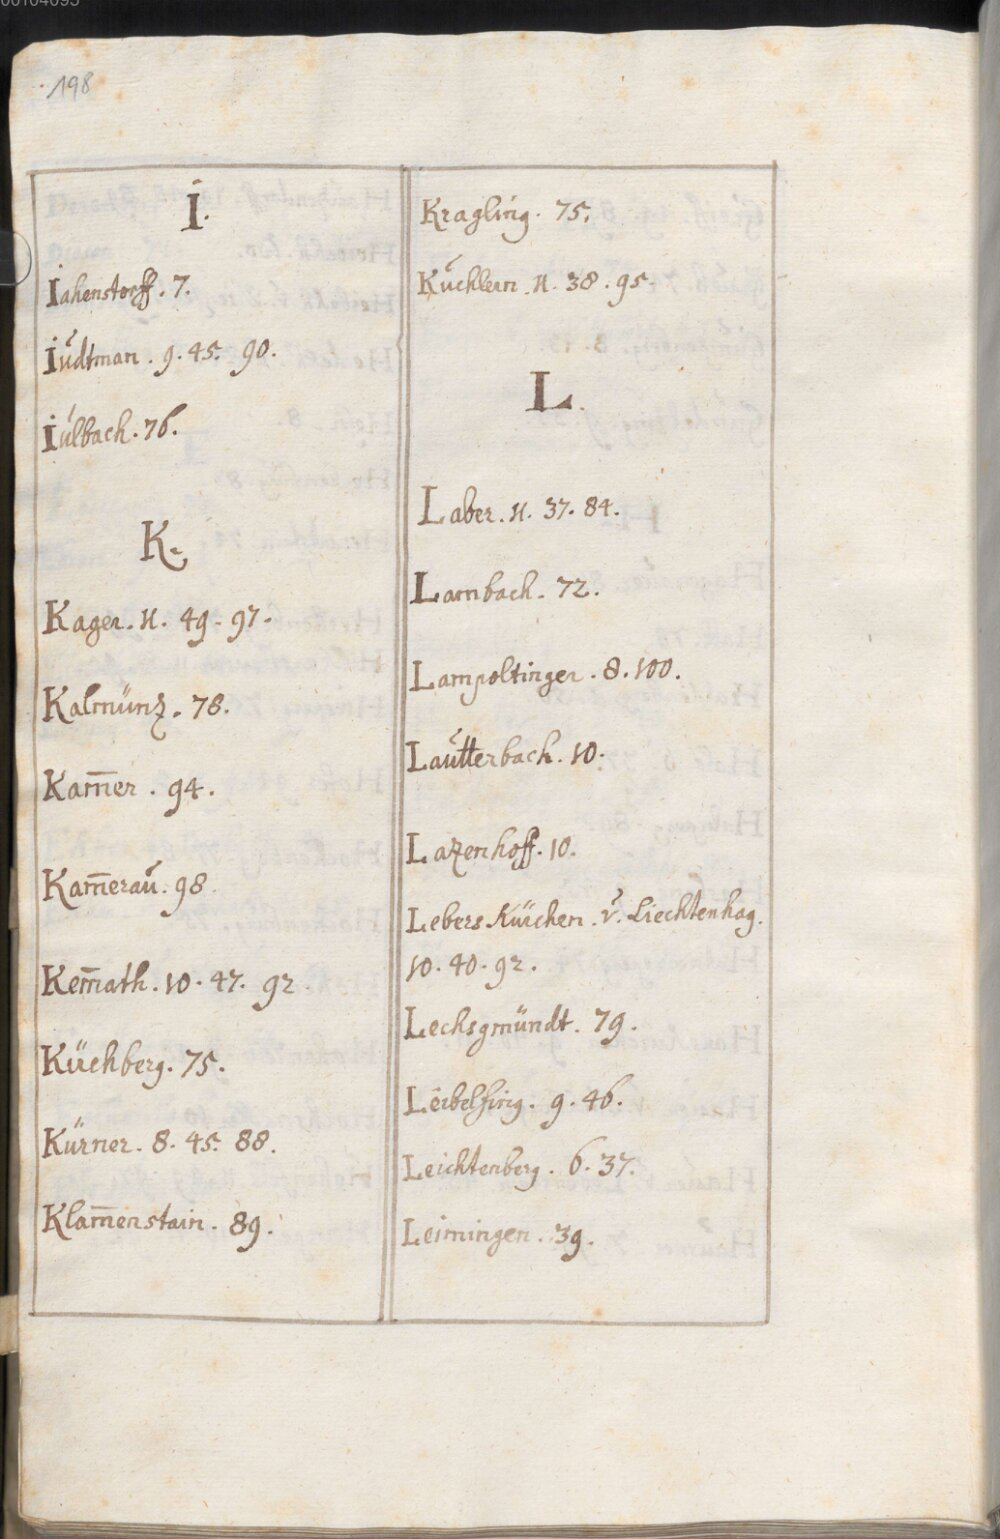 00104095
198
I.
Iahenstorff. 7.
Iúdtman. 9. 45. 90.
Iúlbach. 76.
K.
Kager. 11. 49. 97.
Kalmünz. 78.
Kam̄er. 94.
Kam̄eraú. 98.
Kem̄ath. 10. 47. 92.
Küchberg. 75.
Kürner. 8. 45. 88.
Klam̄enstain. 89.
Kragling. 75.
Kúchlern. 11. 38. 95.
L.
Laber. 11. 37. 84.
Lambach. 72.
Lampoltinger. 8. 100.
Laútterbach. 10.
Lazenhoff. 10.
Lebers Kürchen. v. Liechtenhag.
10. 40. 92.
Lechsgmündt. 79.
Leibelfing. 9. 46.
Leichtenberg. 6. 37.
Leiningen. 39.